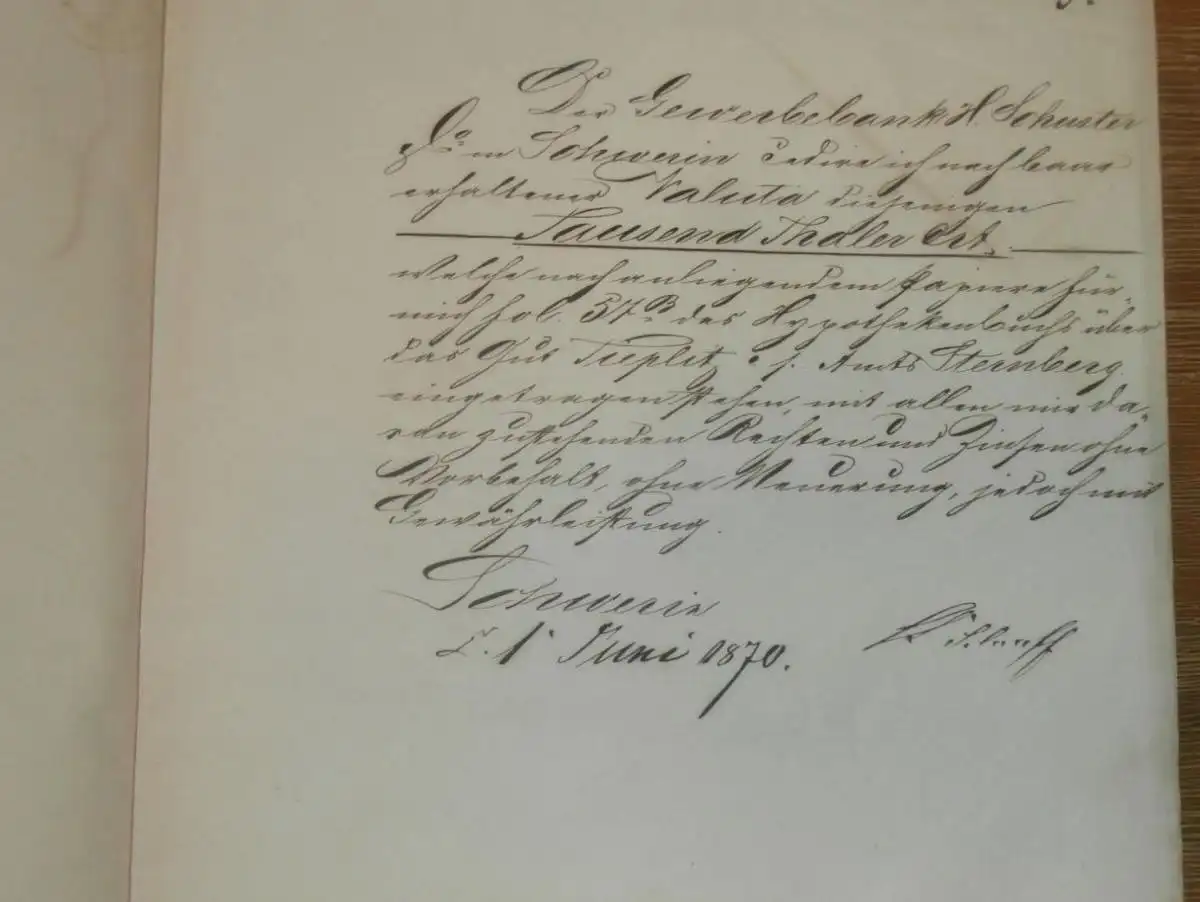 Der Gewerbebank H. Schuster
& Co in Schwerin cedire ich nach baar
erhaltener Valuta diejenigen
Tausend Thaler Crt.
welche nach anliegendem Papiere für
mich fol. 57 des Hypothekenbuchs über
das Gut Tieplitz c. p. Amts Sternberg
eingetragen stehen, mit allen mir da-
ran zustehenden Rechten und Zinsen ohne
Vorbehalt, ohne Neuerung, jedoch mit
Gewährleistung.
Schwerin
d. 1 Juni 1870.